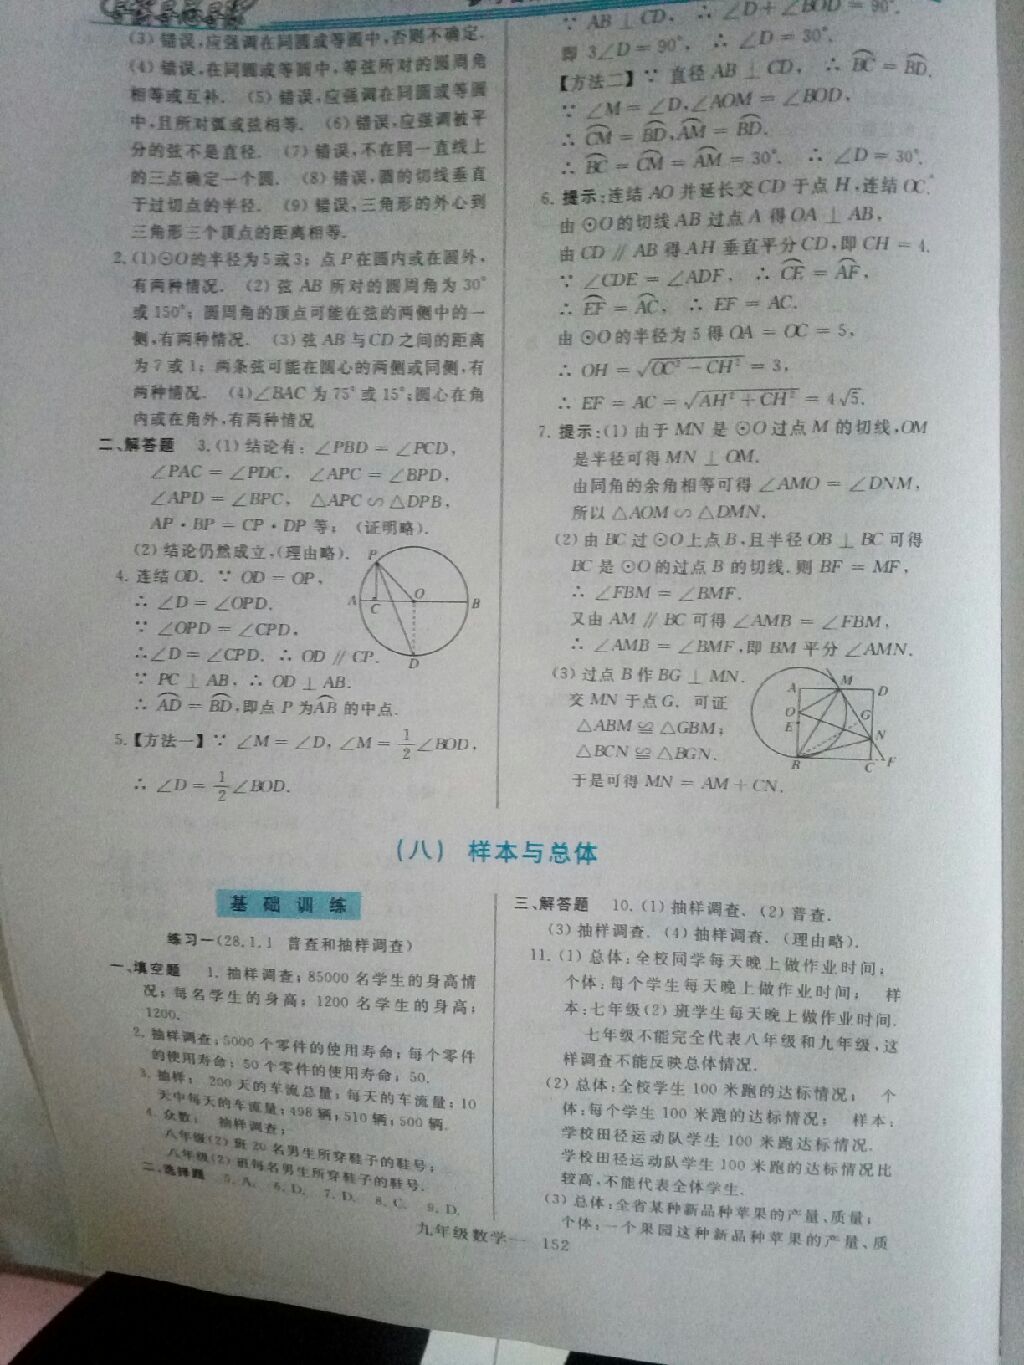 (3) 错误,应强调在同圆或等圆中,否则不确定.
(4) 错误,在同圆或等圆中,等弦所对的圆周角
相等或互补. (5) 错误,应强调在同圆或等圆
中,且所对弧或弦相等. (6) 错误,应强调被平
分的弦不是直径. (7) 错误,不在同一直线上
的三点确定一个圆. (8) 错误,圆的切线垂直
于过切点的半径. (9) 错误,三角形的外心到
三角形三个顶点的距离相等.
2. (1)⊙O的半径为5或3; 点P在圆内或在圆外,
有两种情况. (2) 弦 AB 所对的圆周角为 30°
或 150°; 圆周角的顶点可能在弦的两侧中的一
侧,有两种情况. (3) 弦 AB 与 CD 之间的距离
为 7 或 1; 两条弦可能在圆心的两侧或同侧,有
两种情况. (4)∠BAC 为 75° 或 15°;圆心在角
内或在角外,有两种情况
二、解答题 3. (1) 结论有: ∠PBD = ∠PCD,
∠PAC = ∠PDC, ∠APC = ∠BPD,
∠APD = ∠BPC, △APC ∽ △DPB,
AP · BP = CP · DP 等; (证明略).
(2) 结论仍然成立,(理由略).
4. 连结 OD. ∵ OD = OP,
∴ ∠D = ∠OPD.
∵ ∠OPD = ∠CPD,
∴∠D = ∠CPD. ∴ OD // CP.
∵ PC ⊥ AB, ∴ OD ⊥ AB.
∴ A͡D = B͡D,即点 P 为A͡B 的中点.
P
A
C
O
B
D
5.【方法一】∵ ∠M = ∠D, ∠M = 1/2 ∠BOD,
∴ ∠D = 1/2 ∠BOD.
∵ AB ⊥ CD, ∴ ∠D + ∠BOD = 90°.
即 3∠D = 90°, ∴ ∠D = 30°.
【方法二】∵ 直径 AB ⊥ CD, ∴ B͡C = B͡D.
∵ ∠M = ∠D,∠AOM = ∠BOD,
∴ C͡M = B͡D,A͡M = B͡D.
∴ B͡C = C͡M = A͡M = 30°. ∴ ∠D = 30°.
6. 提示:连结 AO 并延长交 CD 于点 H,连结 OC.
由 ⊙O 的切线 AB 过点 A 得 OA ⊥ AB,
由 CD // AB 得 AH 垂直平分 CD,即 CH = 4.
∵ ∠CDE = ∠ADF, ∴ C͡E = A͡F,
∴ E͡F = A͡C, ∴ EF = AC.
由 ⊙O 的半径为 5 得 OA = OC = 5,
∴ OH = √(OC² − CH²) = 3,
∴ EF = AC = √(AH² + CH²) = 4√5.
7. 提示:(1) 由于 MN 是 ⊙O 过点 M 的切线,OM
是半径可得 MN ⊥ OM.
由同角的余角相等可得 ∠AMO = ∠DNM,
所以 △AOM ∽ △DMN.
(2) 由 BC 过 ⊙O 上点 B,且半径 OB ⊥ BC 可得
BC 是 ⊙O 的过点 B 的切线.则 BF = MF,
∴ ∠FBM = ∠BMF.
又由 AM // BC 可得 ∠AMB = ∠FBM,
∴ ∠AMB = ∠BMF,即 BM 平分 ∠AMN.
(3) 过点 B 作 BG ⊥ MN.
交 MN 于点 G. 可证
△ABM ≌ △GBM;
△BCN ≌ △BGN.
于是可得 MN = AM + CN.
A
M
D
O
G
E
N
B
C
F
(八) 样本与总体
基础训练
练习一(28.1.1 普查和抽样调查)
一、填空题 1. 抽样调查; 85000 名学生的身高情
况; 每名学生的身高; 1200 名学生的身高;
1200.
2. 抽样调查;5000 个零件的使用寿命;每个零件
的使用寿命; 50 个零件的使用寿命; 50.
3. 抽样; 200 天的车流总量;每天的车流量;10
天中每天的车流量;498 辆;510 辆;500 辆.
4. 众数; 抽样调查;
八年级(2) 班 20 名男生所穿鞋子的鞋号;
八年级(2) 班每名男生所穿鞋子的鞋号.
二、选择题 5. A. 6. D. 7. D. 8. C. 9. D.
三、解答题 10. (1) 抽样调查. (2) 普查.
(3) 抽样调查. (4) 抽样调查. (理由略).
11. (1) 总体:全校同学每天晚上做作业时间;
个体:每个学生每天晚上做作业时间; 样
本:七年级(2) 班学生每天晚上做作业时间.
七年级不能完全代表八年级和九年级,这
样调查不能反映总体情况.
(2) 总体:全校学生 100 米跑的达标情况; 个
体:每个学生 100 米跑的达标情况; 样本:
学校田径运动队学生 100 米跑达标情况.
学校田径运动队学生 100 米跑的达标情况比
较高,不能代表全体学生.
(3) 总体:全省某种新品种苹果的产量、质量;
个体:一个果园这种新品种苹果的产量、质
九年级数学— 152